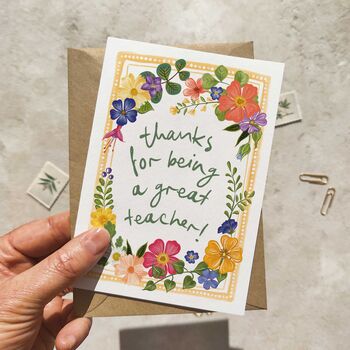 thanks
for being
a great
teacher!